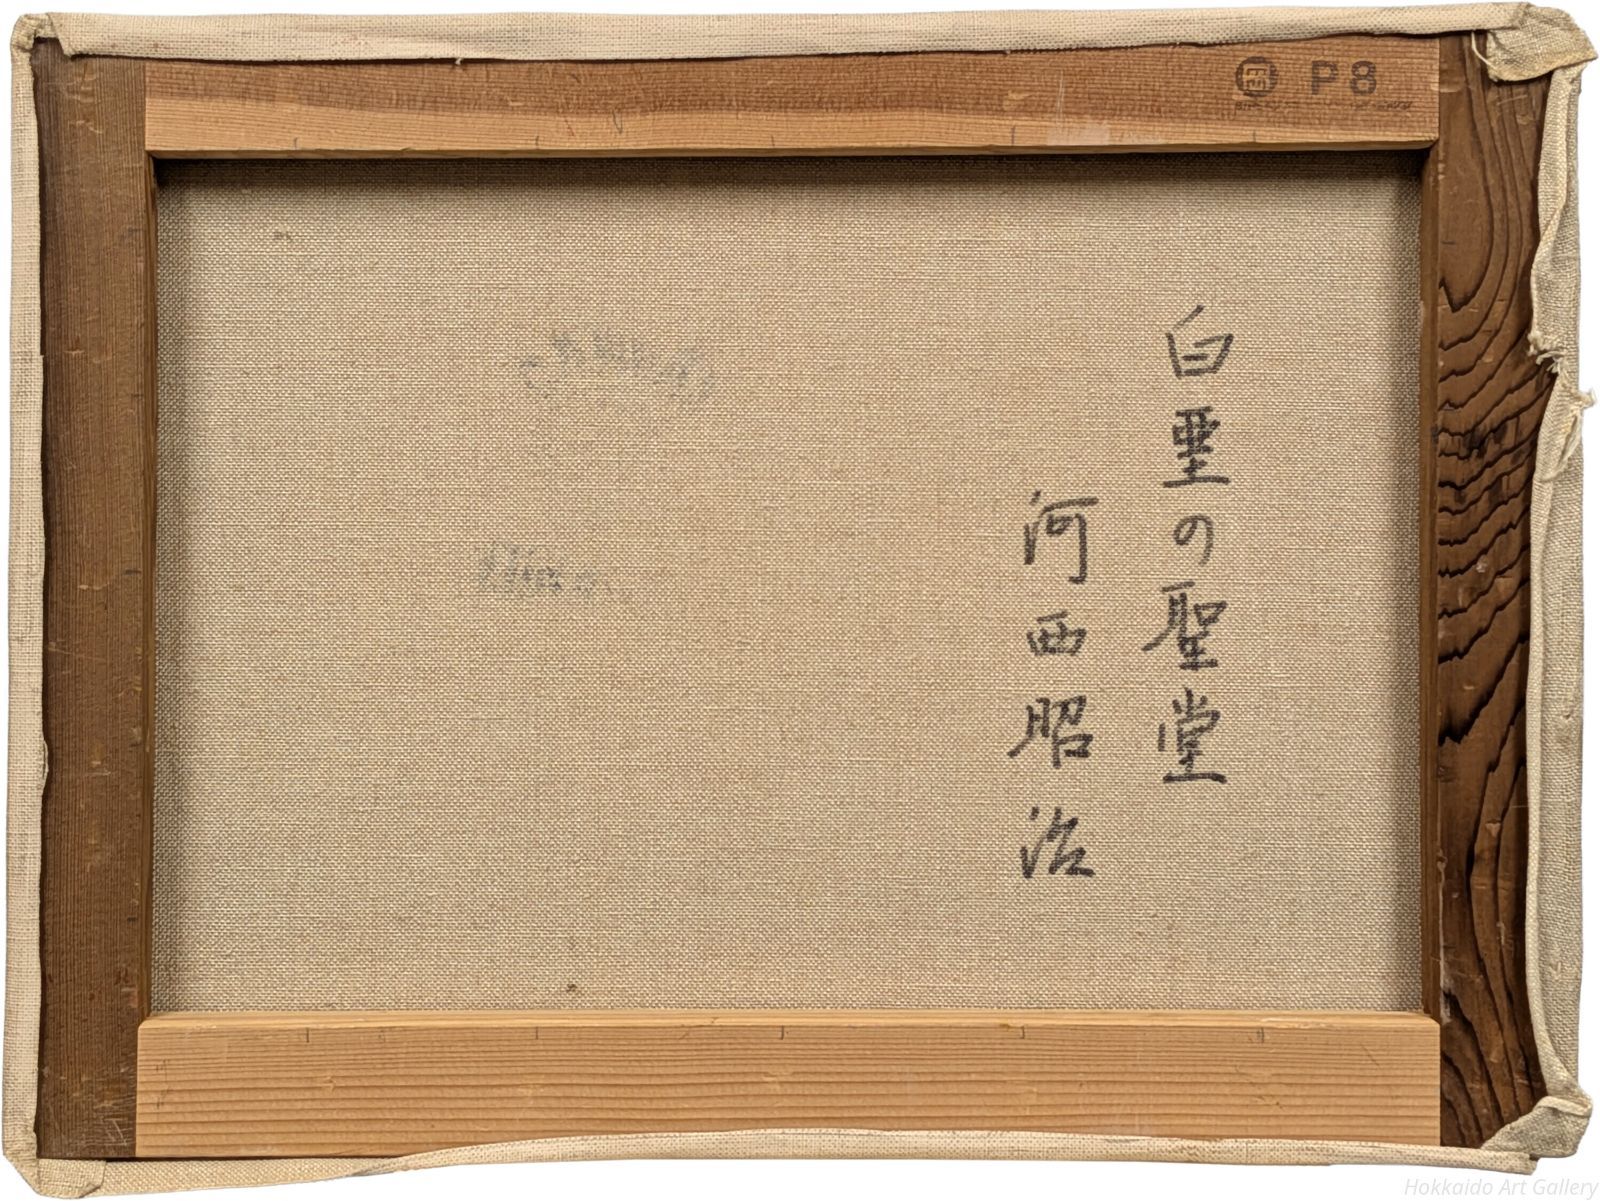 P8
白亜の聖堂
河西昭治
Hokkaido Art Gallery